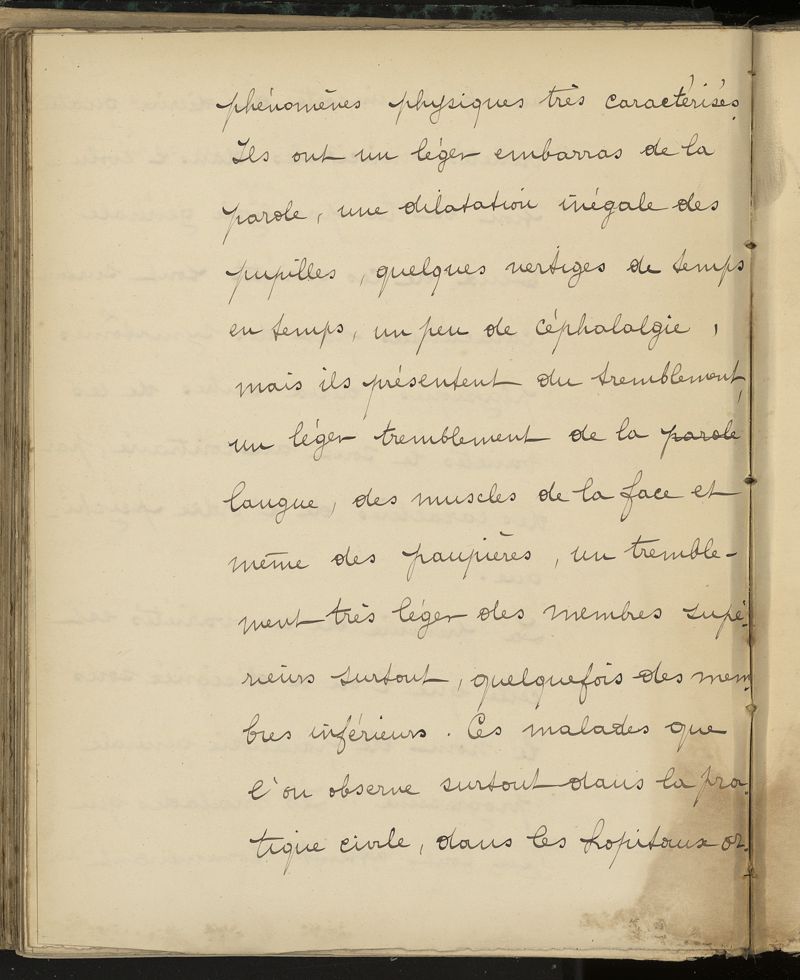 phénomènes physiques très caractérisés.
Ils ont un léger embarras de la
parole, une dilatation inégale des
pupilles, quelques vertiges de temps
en temps, un peu de céphalalgie,
mais ils présentent du tremblement,
un léger tremblement de la parole
langue, des muscles de la face et
même des paupières, un tremble-
ment très léger des membres supé-
rieurs surtout, quelquefois des mem
bres inférieurs. Ces malades que
l'on observe surtout dans la pra-
tique civile, dans les hopitaux or-